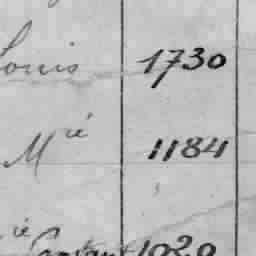 Louis 1730
Mrie 1184
1020